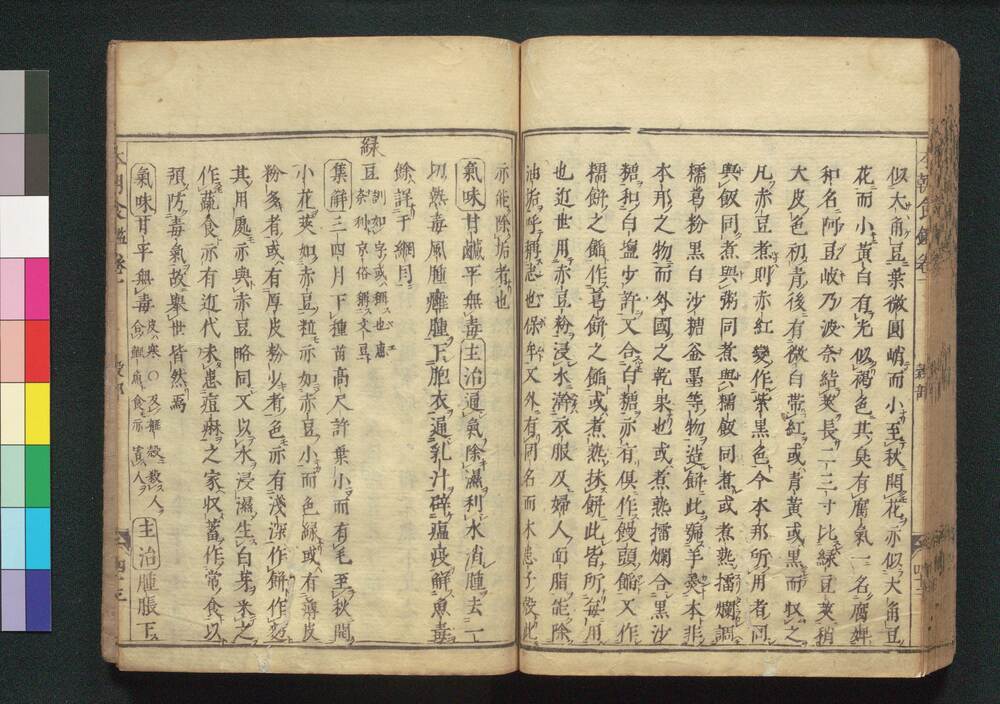 似大角豆葉微圓峭而小至秋開花亦似大角豆
花而小黃白有光似褐色其臭有腐氣一名腐婢
和名阿豆岐乃波奈結莢長二三寸比綠豆莢稍
大皮色初青後有微白帶紅或青黃或黒而収之
凡赤豆煮則赤紅變作紫黒色今本邦所用者同
與飯同煮與粥同煮與糯飯同煮或煮熟擂爛調
糯葛粉黒白沙糖釜墨等物造餅此
羊羹本非
本邦之物而外國之乾果也或煮熟擂爛合黒沙
糖和白塩少許又合白糖亦有俱作饅頭餡又作
糯餅之餡作葛餅之餡或煮熟抹餅此皆所毎用
也近世用赤豆粉浸水澣衣服及婦人面脂能除
油垢呼稱志也保牟又外有同名而木患子殻此
亦能除垢者也
氣味甘鹹平無毒主治通氣除濕利水消腫去一
切熱毒風腫癰腫下胞衣通乳汁碎瘟疫鮮魚毒
餘詳于綱目
綠豆訓如字或稱也惠
奈利京俗稱文豆
集解三四月下種苗高尺許葉小而有毛至秋開
小花莢如赤豆粒亦如赤豆小而色緑或有薄皮
粉多者或有厚皮粉少者色亦有淺深作餅作
其用處亦與赤豆略同又以水浸濕生白芽米之
作蔬食亦有近代未患痘麻之家収蓄作常食以
預防毒氣故舉世皆然焉
氣味甘平無毒皮寒○反榧殻殺人
合鯉食亦
人主治腫脹下